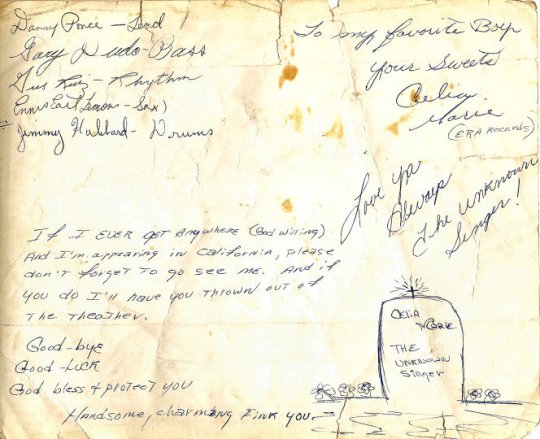 Danny Ponce - Lead
Gary Dudo - Bass
Gus Ruiz - Rhythm
Ennis Earl Lemon - Sax)
Jimmy Hubbard - Drums
To my favorite Boy
Your Sweets
Celia
Marie
(ERA Records)
Love ya
Always
The Unknown
Singer!
If I EVER get anywhere (God willing)
And I'm appearing in California, please
don't forget to go see me. And if
you do I'll have you thrown out of
The Theather.
Good-bye
Good-luck
God bless + protect you
Handsome, charming Fink you.
Celia
Marie
The
Unknown
Singer